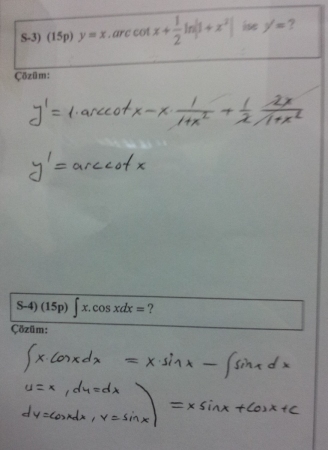 S-3) (15p) y = x.arc cot x + 1/2 ln|1 + x²| ise y' = ?
Çözüm:
y' = 1·arccotx − x·1/(1+x²) + 1/2 2x/(1+x²)
y' = arccotx
S-4) (15p) ∫x.cos xdx = ?
Çözüm:
∫x·cosxdx = x·sinx − ∫sinxdx
u=x , du=dx
dv=cosxdx , v=sinx
= xsinx + cosx + c